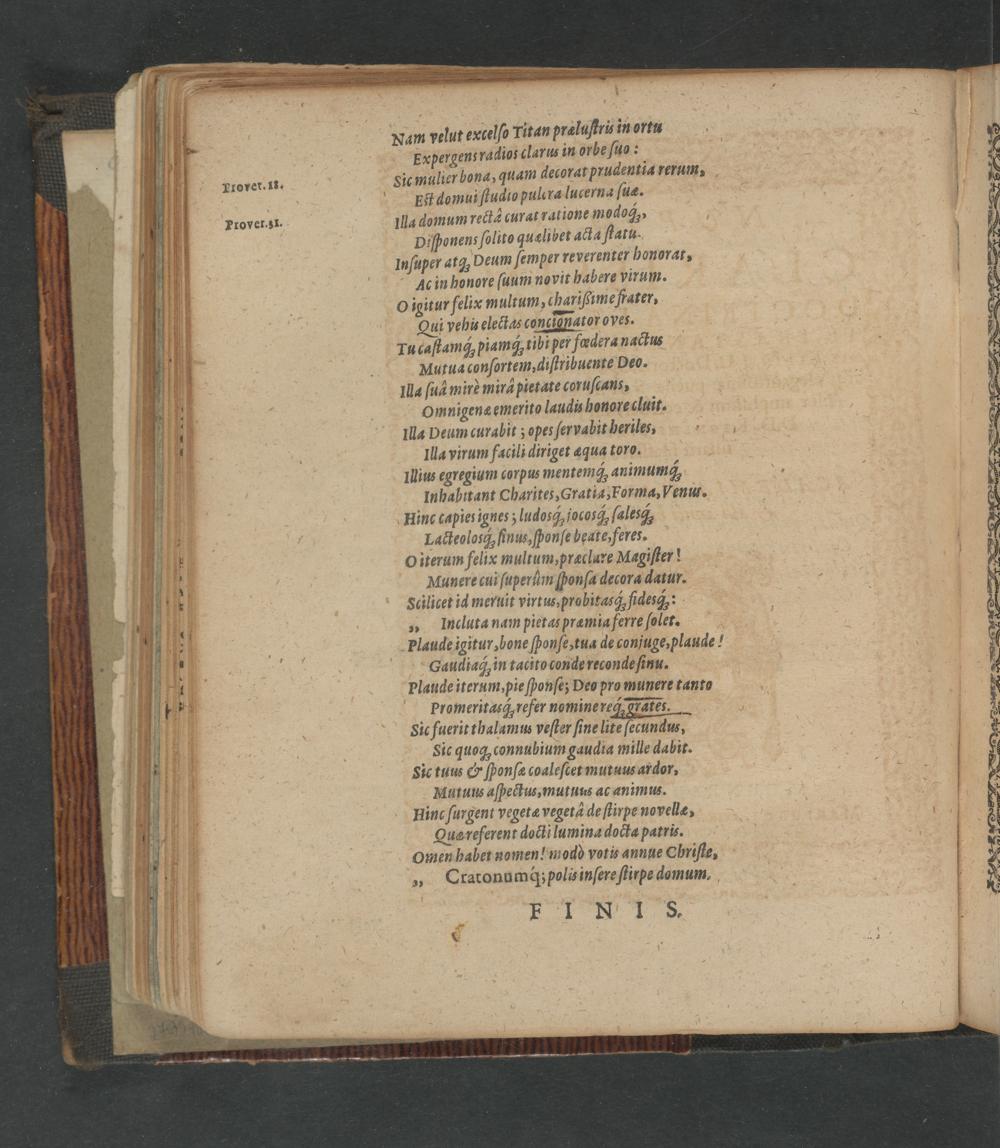 Nam velut excelſo Titan præluſtris in ortu
Expergens radios clarus in orbe ſuo:
Sic mulier bona, quam decorat prudentia rerum,
Prover. 18.
Eſt domui ſtudio pulcra lucerna ſuæ.
Illa domum rectâ curat ratione modoq́ꝫ,
Prover. 31.
Diſponens ſolito quælibet acta ſtatu.
Inſuper atqꝫ Deum ſemper reverenter honorat,
Ac in honore ſuum novit habere virum.
O igitur felix multum, chariſsime frater,
Qui vehis electas concionator oves.
Tu caſtamq́ꝫ piamq́ꝫ tibi per fœdera nactus
Mutua conſortem, diſtribuente Deo.
Illa ſuâ mirè mirâ pietate coruſcans,
Omnigenæ emerito laudis honore cluit.
Illa Deum curabit; opes ſervabit heriles,
Illa virum facili diriget æqua toro.
Illius egregium corpus mentemq́ꝫ animumq́ꝫ
Inhabitant Charites, Gratia, Forma, Venus.
Hinc capies ignes; ludosq́ꝫ jocosq́ꝫ ſalesq́ꝫ
Lacteolosq́ꝫ ſinus, ſponſe beate, feres.
O iterum felix multum, præclare Magiſter!
Munere cui ſuperûm ſponſa decora datur.
Scilicet id meruit virtus, probitasq́ꝫ fidesq́ꝫ:
„ Incluta nam pietas præmia ferre ſolet.
Plaude igitur, bone ſponſe, tua de conjuge, plaude!
Gaudiaq́ꝫ in tacito conde reconde ſinu.
Plaude iterum, pie ſponſe; Deo pro munere tanto
Promeritasq́ꝫ refer nomine req́ꝫ grates.
Sic fuerit thalamus veſter ſine lite ſecundus,
Sic quoqꝫ connubium gaudia mille dabit.
Sic tuus & ſponſæ coaleſcet mutuus ardor,
Mutuus aſpectus, mutuus ac animus.
Hinc ſurgent vegetæ vegetâ de ſtirpe novellæ,
Quæ referent docti lumina docta patris.
Omen habet nomen! modò votis annue Chriſte,
„ Cratonumq́; polis inſere ſtirpe domum.
FINIS.